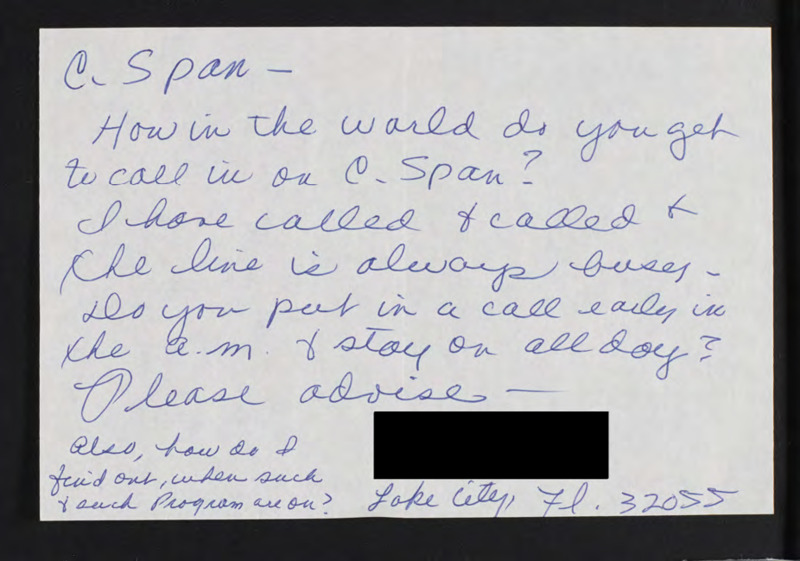 C. Span —
How in the world do you get
to call in on C. Span?
I have called & called &
the line is always busy -
Do you put in a call early in
the a.m. & stay on all day?
Please advise —
Also, how do I
find out, when such
& such Program are on?
Lake City, Fl. 32055